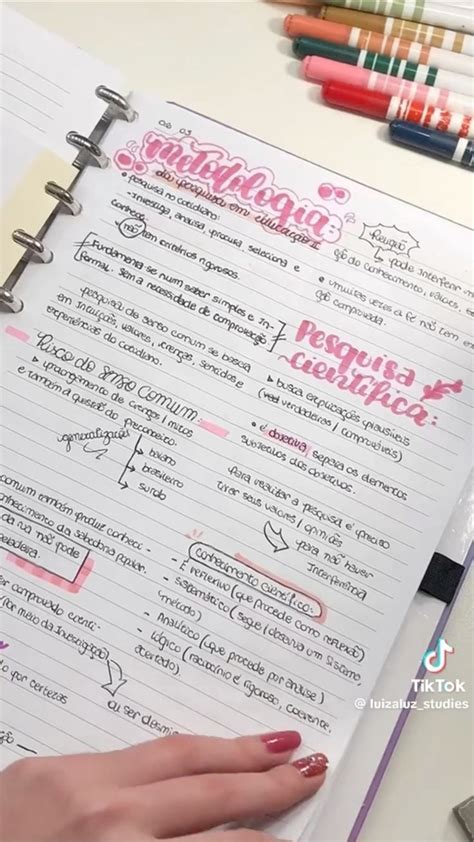 06 03
metodologia:
da pesquisa em educação II
• pesquisa no cotidiano:
- Investiga, analisa, procura, seleciona e
conhece.
não tem critérios rigorosos.
Fundamenta-se num saber simples e in-
formal. Sem a necessidade de comprovação
pesquisa do senso comum se baseia
em intuições, valores, crenças, sentidos e
experiências do cotidiano.
Risco do senso comum:
prolongamento de crenças/mitos
e também a questão do preconceito.
generalizações
baiano
brasileiro
surdo
comum também produz conheci-
conhecimento da sabedoria popular.
da rua não pode
geladeira.
ser comprovado cienti-
por meio da investigação)
ou ser desmis
to por certezas
Religião
pode interferir
ção do conhecimento, valores,
• muitas vezes a fé não tem
ção comprovada.
Pesquisa
científica:
busca explicações plausíveis
verdadeiras/comprováveis)
• é objetiva separa os elementos
subjetivos dos objetivos.
para realizar a pesquisa é preciso
tirar seus valores/opiniões
para não haver
interferência
conhecimento científico:
- É reflexivo (que procede como reflexão)
- Sistemático (segue/observa um sistema,
método)
- Analítico (que procede por análise)
- Lógico (raciocínio é rigoroso, coerente,
acertado).
TikTok
@ luizaluz_studies